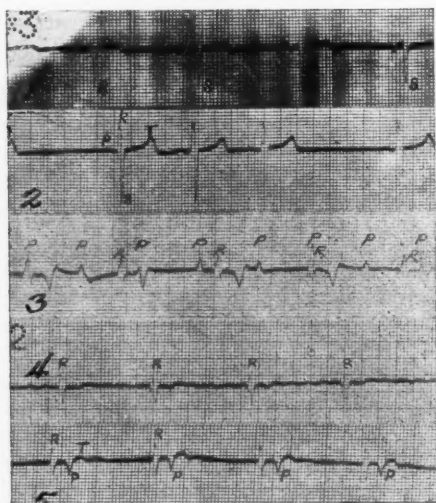 3
S S S
P R T
S
2
P P P P P P P P
R R R R
3
2
4 R R R R
R T R
P P P P
5